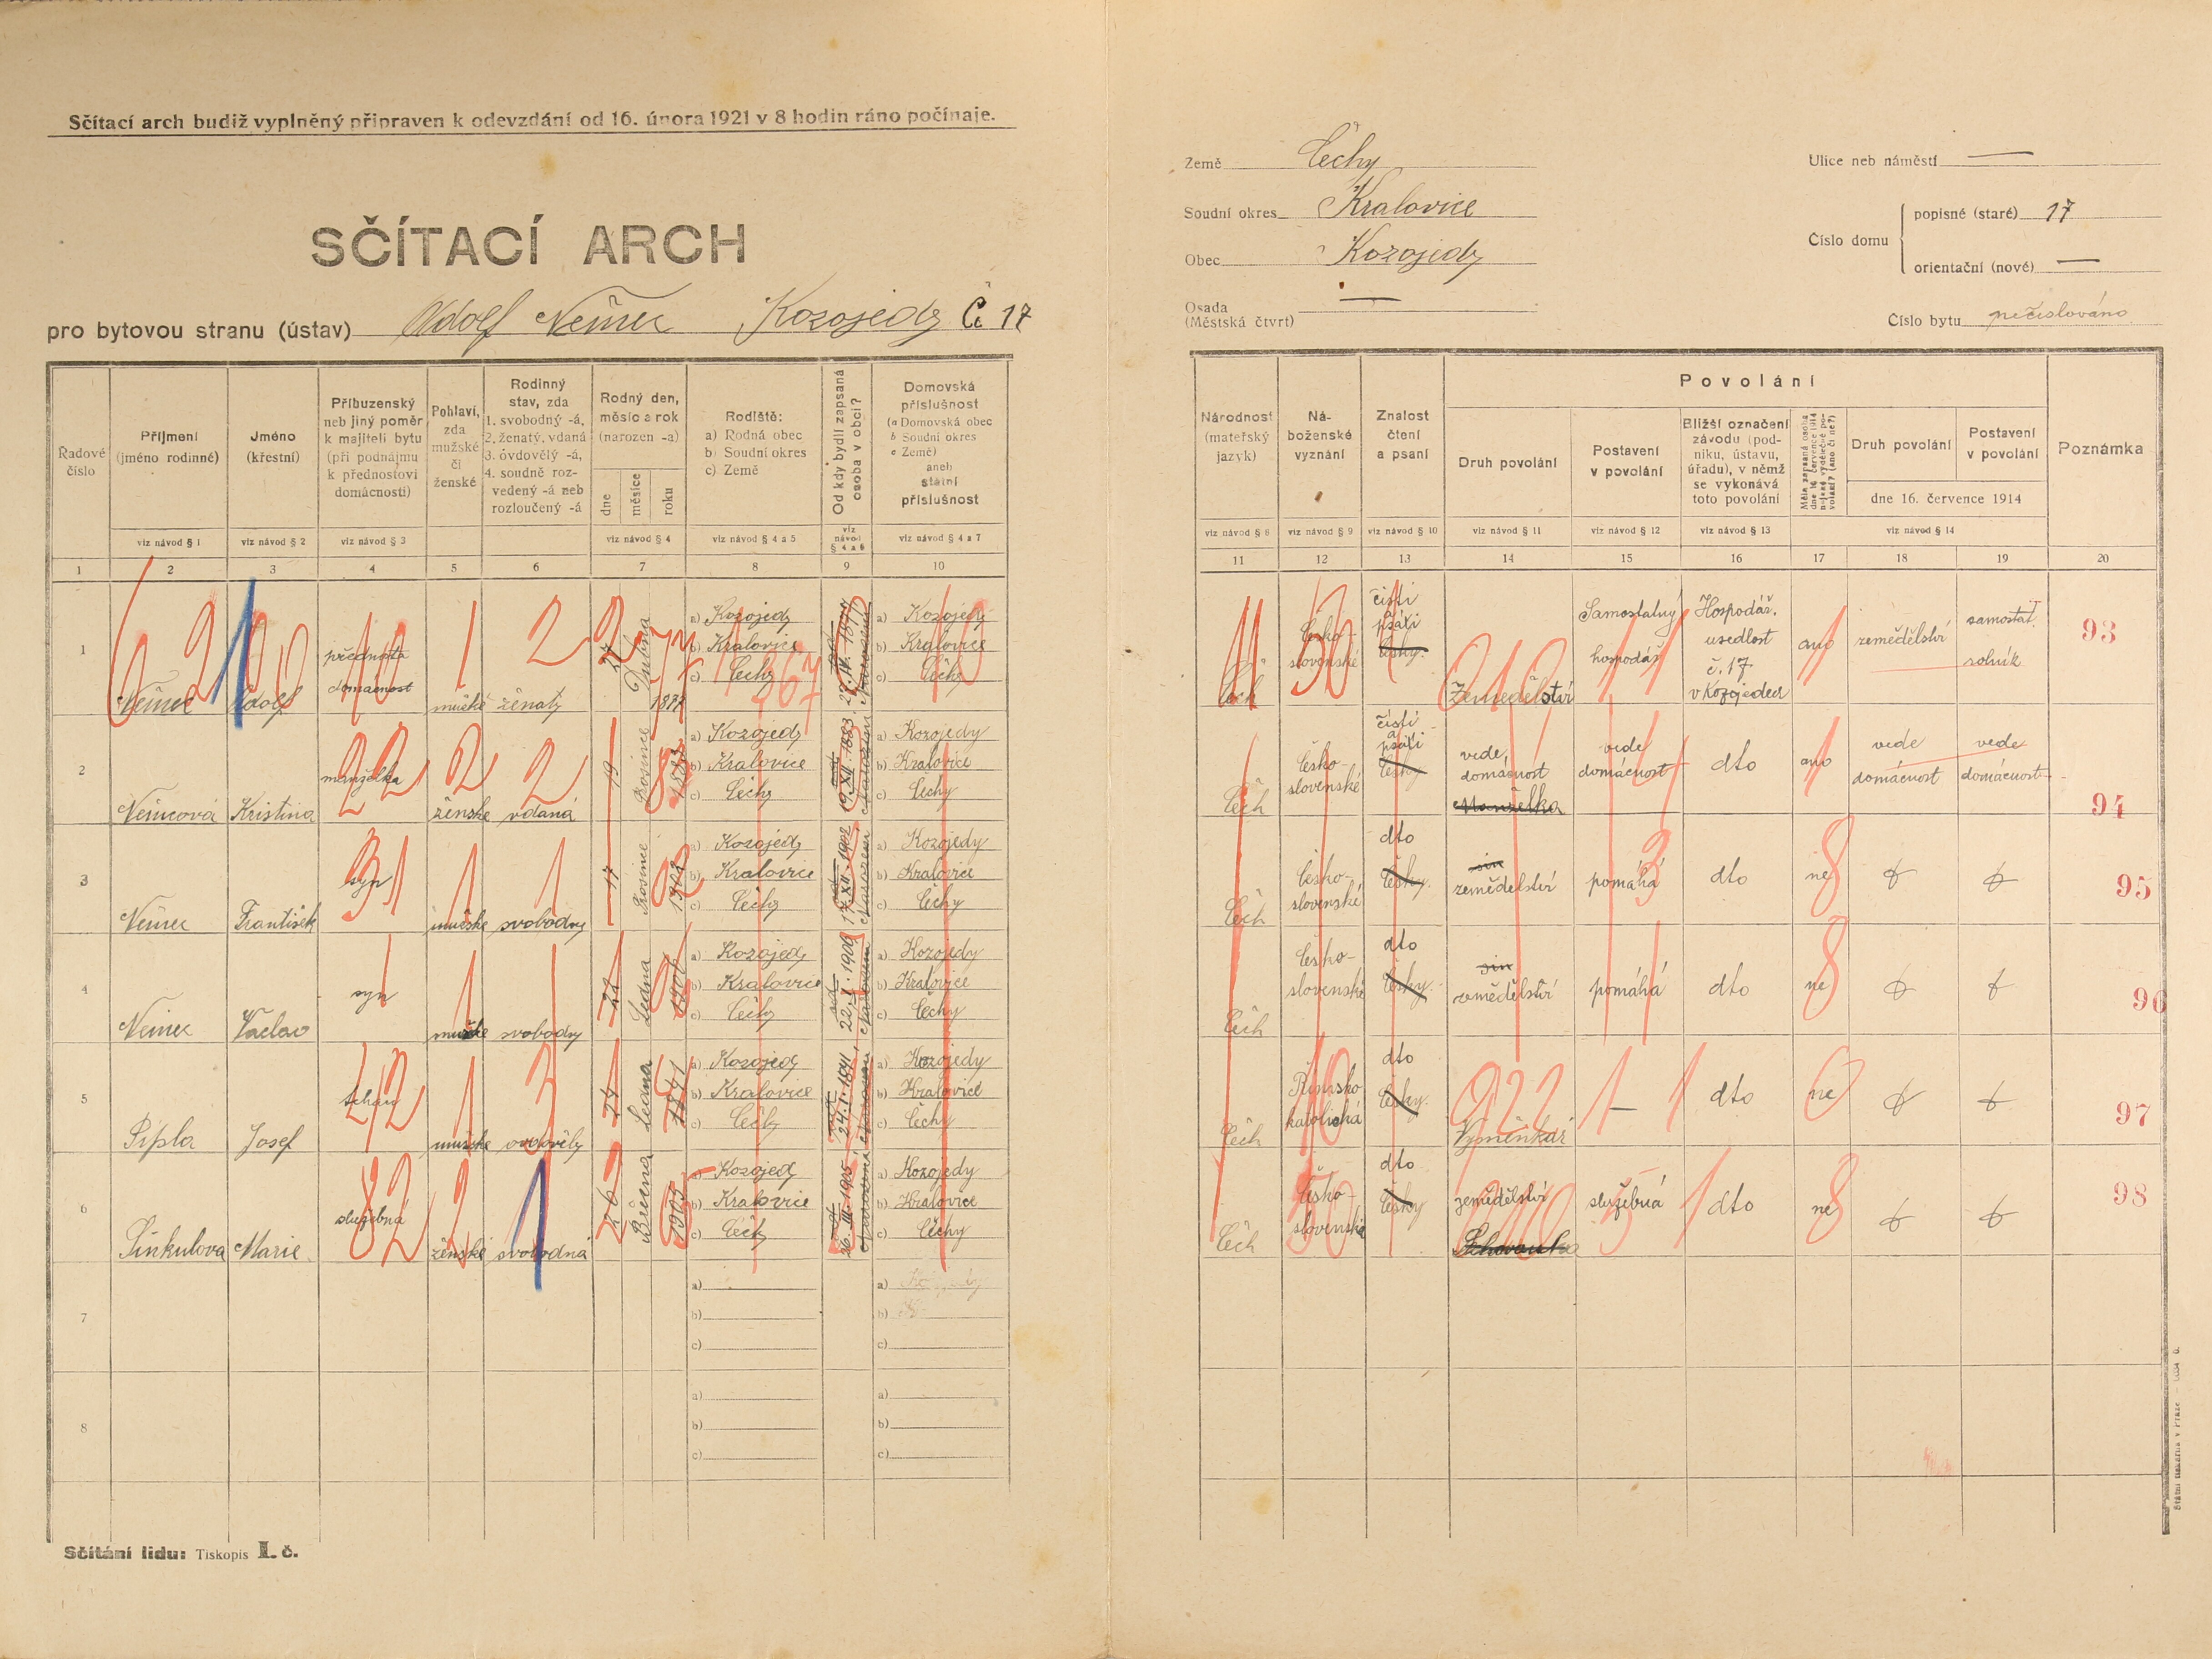 Sčítací arch budiž vyplněný připraven k odevzdání od 16. února 1921 v 8 hodin ráno počínaje.
SČÍTACÍ ARCH
pro bytovou stranu (ústav) Adolf Němec Kozojedy Č 17
Řadové číslo
Příjmení (jméno rodinné)
Jméno (křestní)
Příbuzenský neb jiný poměr k majiteli bytu (při podnájmu k přednostovi domácnosti)
Pohlaví, zda mužské či ženské
Rodinný stav, zda 1. svobodný -á, 2. ženatý, vdaná 3. ovdovělý -á, 4. soudně rozvedený -á neb rozloučený -á
Rodný den, měsíc a rok (narozen -a)
dne měsíce roku
Rodiště: a) Rodná obec b) Soudní okres c) Země
Od kdy bydlí zapsaná osoba v obci?
Domovská příslušnost (a Domovská obec b Soudní okres c Země) aneb státní příslušnost
viz návod § 1 viz návod § 2 viz návod § 3 viz návod § 4 viz návod § 4 a 5 viz návod § 4 a 6 viz návod § 4 a 7
1 2 3 4 5 6 7 8 9 10
1 Němec Adolf přednosta domácnost mužské ženatý 27 Dubna 1877
a) Kozojedy b) Kralovice c) Čechy
27.IV.1877
a) Kozojedy b) Kralovice c) Čechy
2 Němcová Kristina manželka ženské vdaná 19 Prosince 1883
a) Kozojedy b) Kralovice c) Čechy
19.XII.1883
a) Kozojedy b) Kralovice c) Čechy
3 Němec František syn mužske svobodny 17 Prosince 1902
a) Kozojedy b) Kralovice c) Čechy
17.XII.1902
a) Kozojedy b) Kralovice c) Čechy
4 Němec Vaclav syn mužske svobodny 22 Ledna
a) Kozojedy b) Kralovice c) Čechy
22.I.
a) Kozojedy b) Kralovice c) Čechy
5 Josef tchan mužske ovdověly 24 Ledna 1841
a) Kozojedy b) Kralovice c) Čechy
24.I.1841
a) Kozojedy b) Kralovice c) Čechy
6 Marie služebná ženské svobodná 26 Března 1905
a) Kozojedy b) Kralovice c) Čechy
26.III.1905
a) Kozojedy b) Kralovice c) Čechy
7 a) b) c) a) b) c)
8 a) b) c) a) b) c)
Sčítání lidu: Tiskopis I. č.
Země Čechy
Soudní okres Kralovice
Obec Kozojedy
Osada (Městská čtvrť) —
Ulice neb náměstí —
Číslo domu popisné (staré) 17
orientační (nové) —
Číslo bytu nečíslováno
Národnost (mateřský jazyk)
Náboženské vyznání
Znalost čtení a psaní
Povolání
Druh povolání
Postavení v povolání
Bližší označení závodu (podniku, ústavu, úřadu), v němž se vykonává toto povolání
Druh povolání
Postavení v povolání
dne 16. července 1914
Poznámka
viz návod § 8 viz návod § 9 viz návod § 10 viz návod § 11 viz návod § 12 viz návod § 13 viz návod § 14
11 12 13 14 15 16 17 18 19 20
Čech Česko-slovenské čísti psáti česky. Zemědělství Samostatný hospodář Hospodář. usedlost č. 17 v Kozojedech ano zemědělství samostat. rolník 93
Čech Česko-slovenské čísti a psáti česky vede domácnost manželka vede domácnost dto ano vede domácnost vede domácnost 94
Čech Česko-slovenské dto česky. syn zemědělství pomáhá dto ne 95
Čech Česko-slovenské dto česky. syn zemědělství pomáhá dto ne 96
Čech Římsko katolická dto česky. Výměnkář — dto ne 97
Čech Česko-slovenské dto česky zemědělství Schovanka služebná dto ne 98